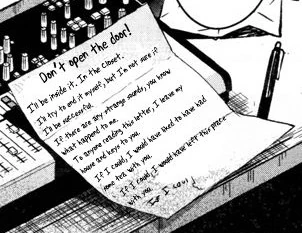 Don't open the door!
I'll be inside it. In the closet.
I'll try to end it myself, but I'm not sure if
I'll be successful.
If there are any strange sounds, you know
what happened to me.
To anyone reading this letter, I leave my
house and keys to you.
If I could, I would have liked to have had
some tea with you.
If I could, I would have left this place
with you.
If I could